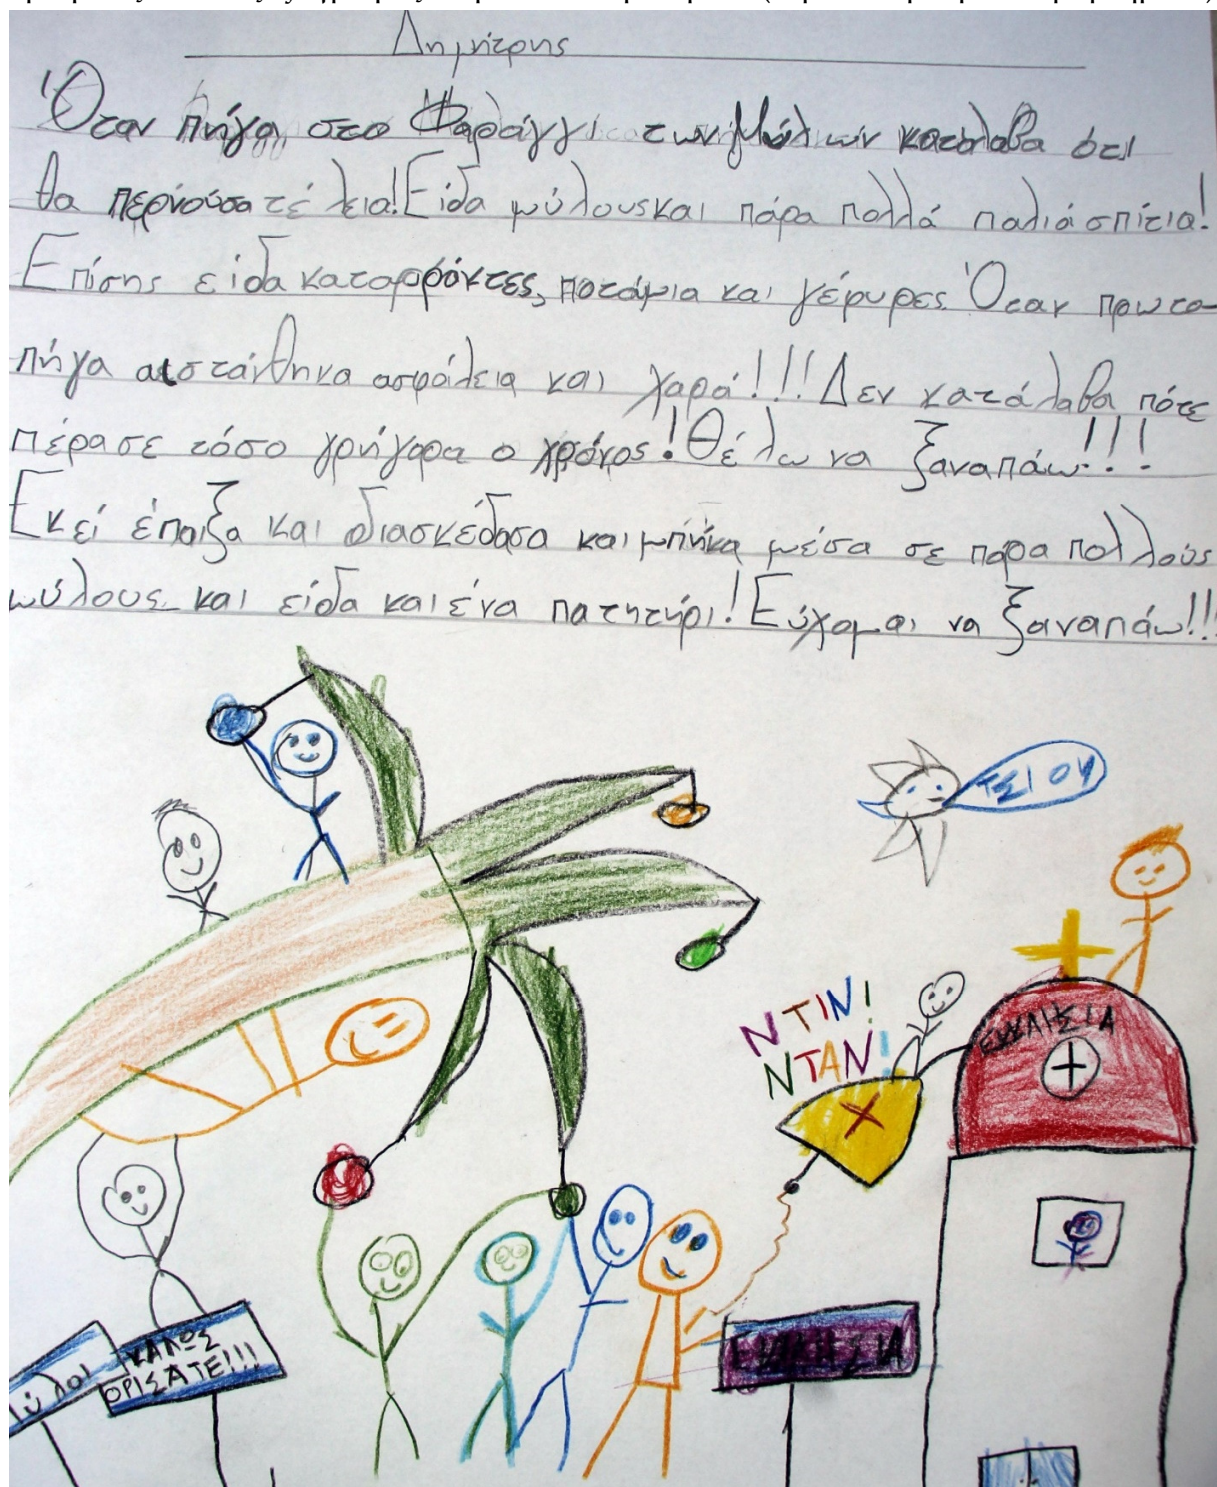 Δημήτρης
Όταν πήγα στο Φαράγγι των Μύλων κατάλαβα ότι
θα περνούσα τέλεια! Είδα μύλους και πάρα πολλά παλιά σπίτια!
Επίσης είδα καταρράκτες, ποτάμια και γέφυρες. Όταν πρωτο-
πήγα αιστάνθηκα ασφάλεια και χαρά!!! Δεν κατάλαβα πότε
πέρασε τόσο γρήγορα ο χρόνος! Θέλω να ξαναπάω!!!
Εκεί έπαιξα και διασκέδασα και μπήκα μέσα σε πάρα πολλούς
μύλους και είδα και ένα πατητήρι! Εύχομαι να ξαναπάω!!!
ΤΣΙΟΥ
ΝΤΙΝ!
ΝΤΑΝ!
ΕΚΚΛΙΣΙΑ
ΚΑΛΩΣ
ΟΡΙΣΑΤΕ!!!
ύλοι
ΕΚΚΛΗΣΙΑ